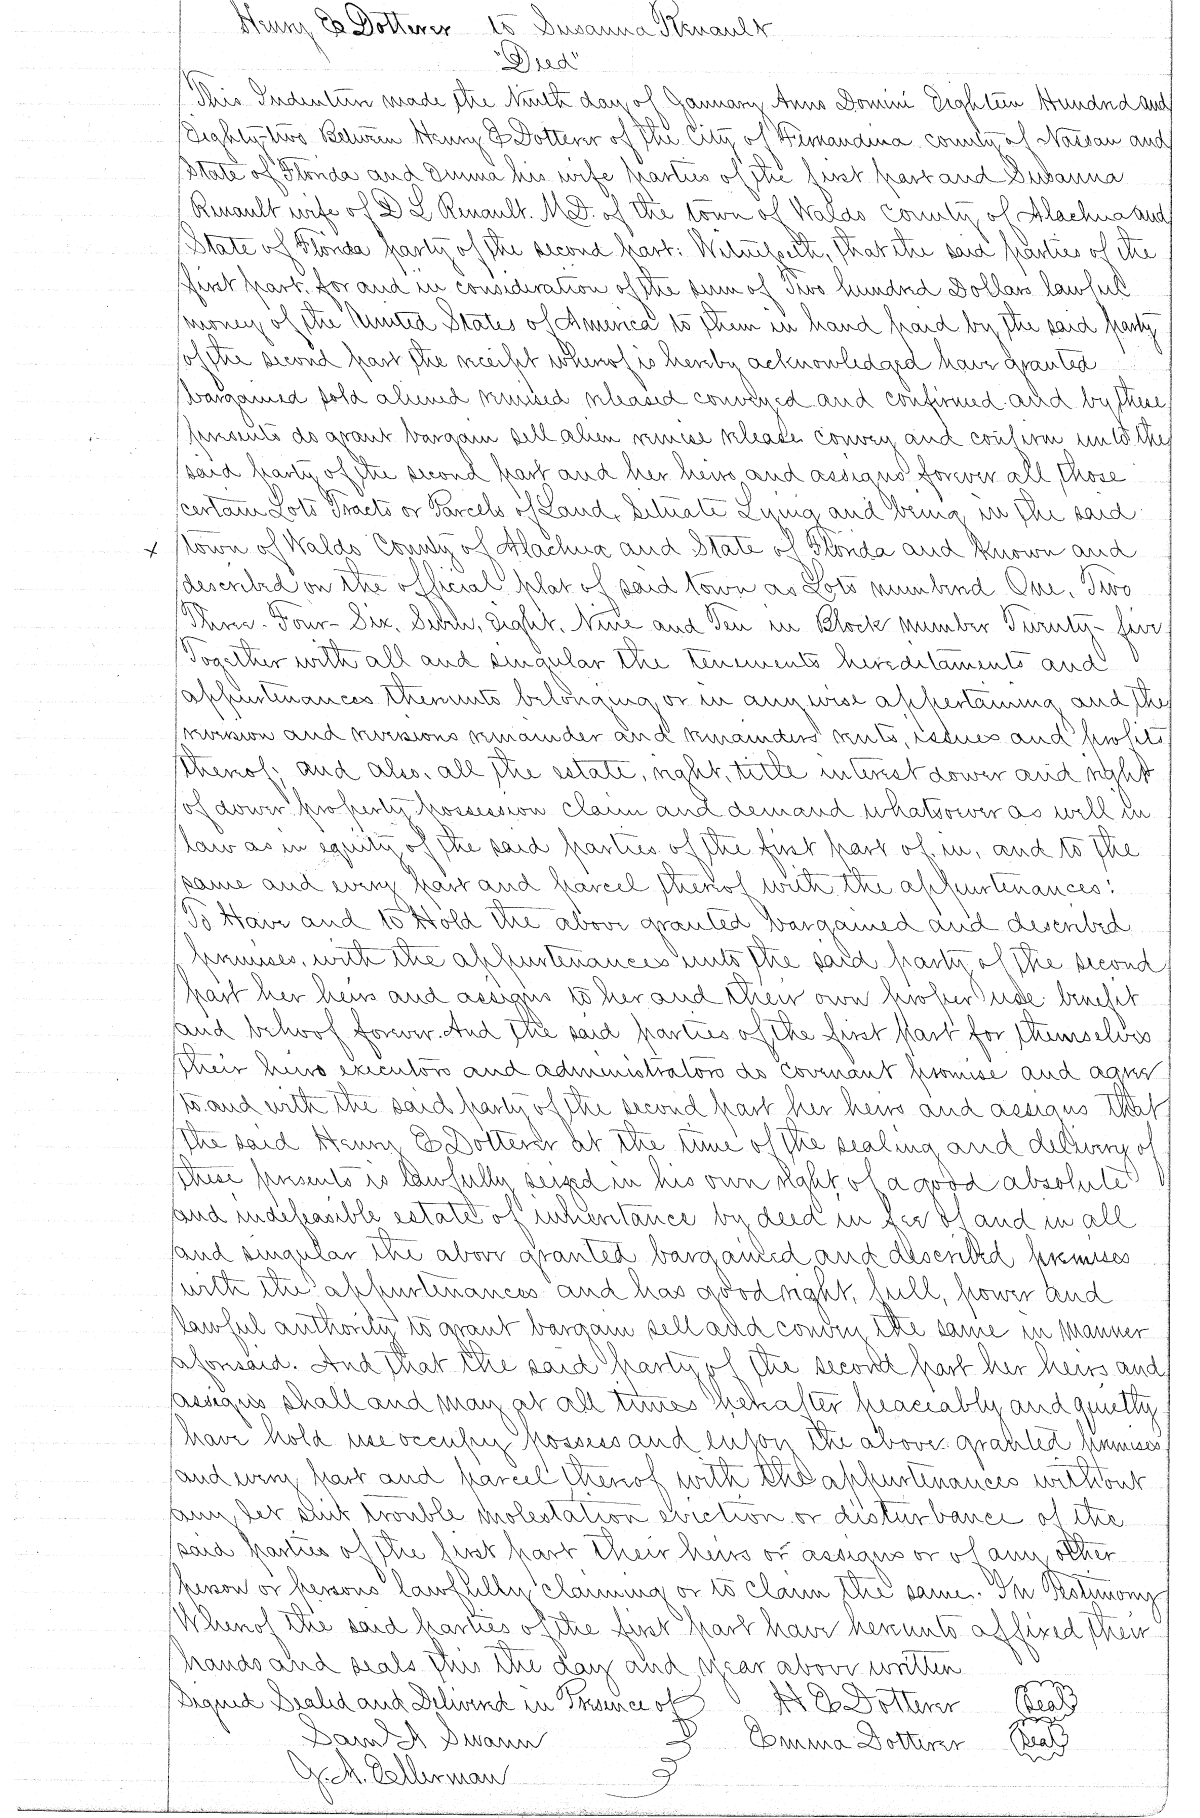 Henry E Dotterer to Susanna Renault
"Deed"
This Indenture made the Ninth day of January Anno Domini Eighteen Hundred and
Eighty-two Between Henry E Dotterer of the City of Fernandina county of Nassau and
State of Florida and Emma his wife parties of the first part and Susanna
Renault wife of D L Renault. M.D. of the town of Waldo County of Alachua and
State of Florida party of the second part: Witnesseth, that the said parties of the
first part, for and in consideration of the sum of Two hundred Dollars lawful
money of the United States of America to them in hand paid by the said party
of the second part the receipt whereof is hereby acknowledged have granted
bargained sold aliened remised released conveyed and confirmed and by these
presents do grant bargain sell alien remise release convey and confirm unto the
said party of the second part and her heirs and assigns forever all those
certain Lots Tracts or Parcels of Land, Situate Lying and being in the said
x town of Waldo County of Alachua and State of Florida and Known and
described on the official plat of said town as Lots numbered One, Two
Three - Four - Six, Seven, Eight, Nine and Ten in Block number Twenty-five
Together with all and singular the tenements hereditaments and
appurtenances thereunto belonging or in anywise appertaining and the
reversion and reversions remainder and remainders rents, issues and profits
thereof; and also, all the estate, right, title interest dower and right
of dower property possession claim and demand whatsoever as well in
law as in equity of the said parties of the first part of, in, and to the
same and every part and parcel thereof with the appurtenances:
To Have and to Hold the above granted bargained and described
premises, with the appurtenances unto the said party of the second
part her heirs and assigns to her and their own proper use benefit
and behoof forever. And the said parties of the first part for themselves
their heirs executors and administrators do covenant promise and agree
to and with the said party of the second part her heirs and assigns that
the said Henry E Dotterer at the time of the sealing and delivery of
these presents is lawfully seized in his own right, of a good absolute
and indefeasible estate of inheritance by deed in fee of and in all
and singular the above granted bargained and described premises
with the appurtenances and has good right, full, power and
lawful authority to grant bargain sell and convey the same in manner
aforesaid. And that the said party of the second part her heirs and
assigns shall and may at all times hereafter peaceably and quietly
have hold use occupy possess and enjoy the above granted premises
and every part and parcel thereof with the appurtenances without
any let suit trouble molestation eviction or disturbance of the
said parties of the first part their heirs or assigns or of any other
person or persons lawfully claiming or to claim the same. In Testimony
Whereof the said parties of the first part have hereunto affixed their
hands and seals this the day and year above written
Signed Sealed and Delivered in Presence of H E Dotterer (Seal)
Saml A Swann Emma Dotterer (Seal)
G. A. Ellerman